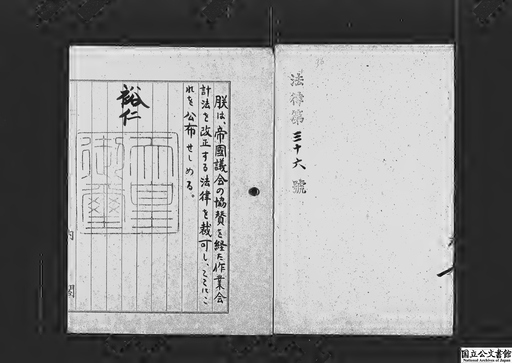 法律第三十六號
朕は、帝國議会の協賛を経た作業会
計法を改正する法律を裁可し、ここにこ
れを公布せしめる。
裕仁
天皇
御璽
内閣
国立公文書館
National Archives of Japan